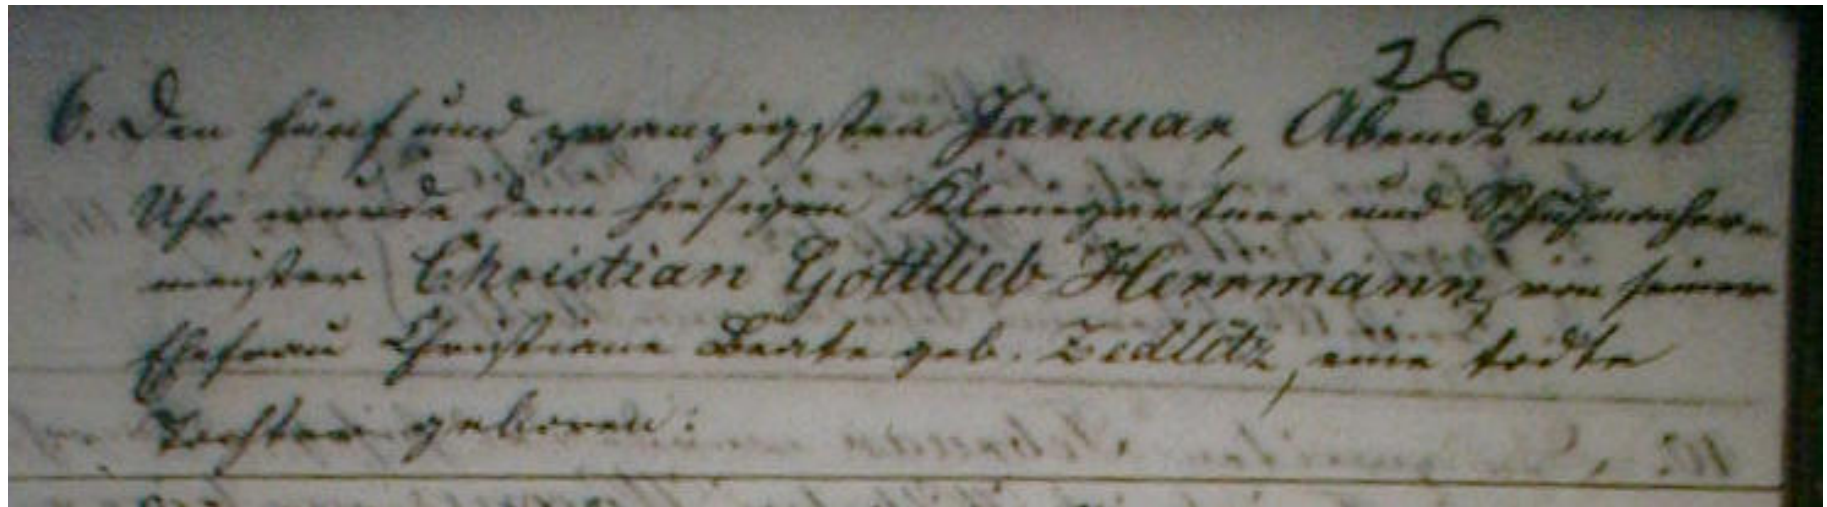 26
6. Den fünf und zwanzigsten Januar, Abends um 10
Uhr wurde dem hiesigen Kleingärtner und Schuhmacher-
meister Christian Gottlieb Herrmann, von seiner
Ehefrau Christiane Beate geb. Zedlitz, eine todte
Tochter geboren.